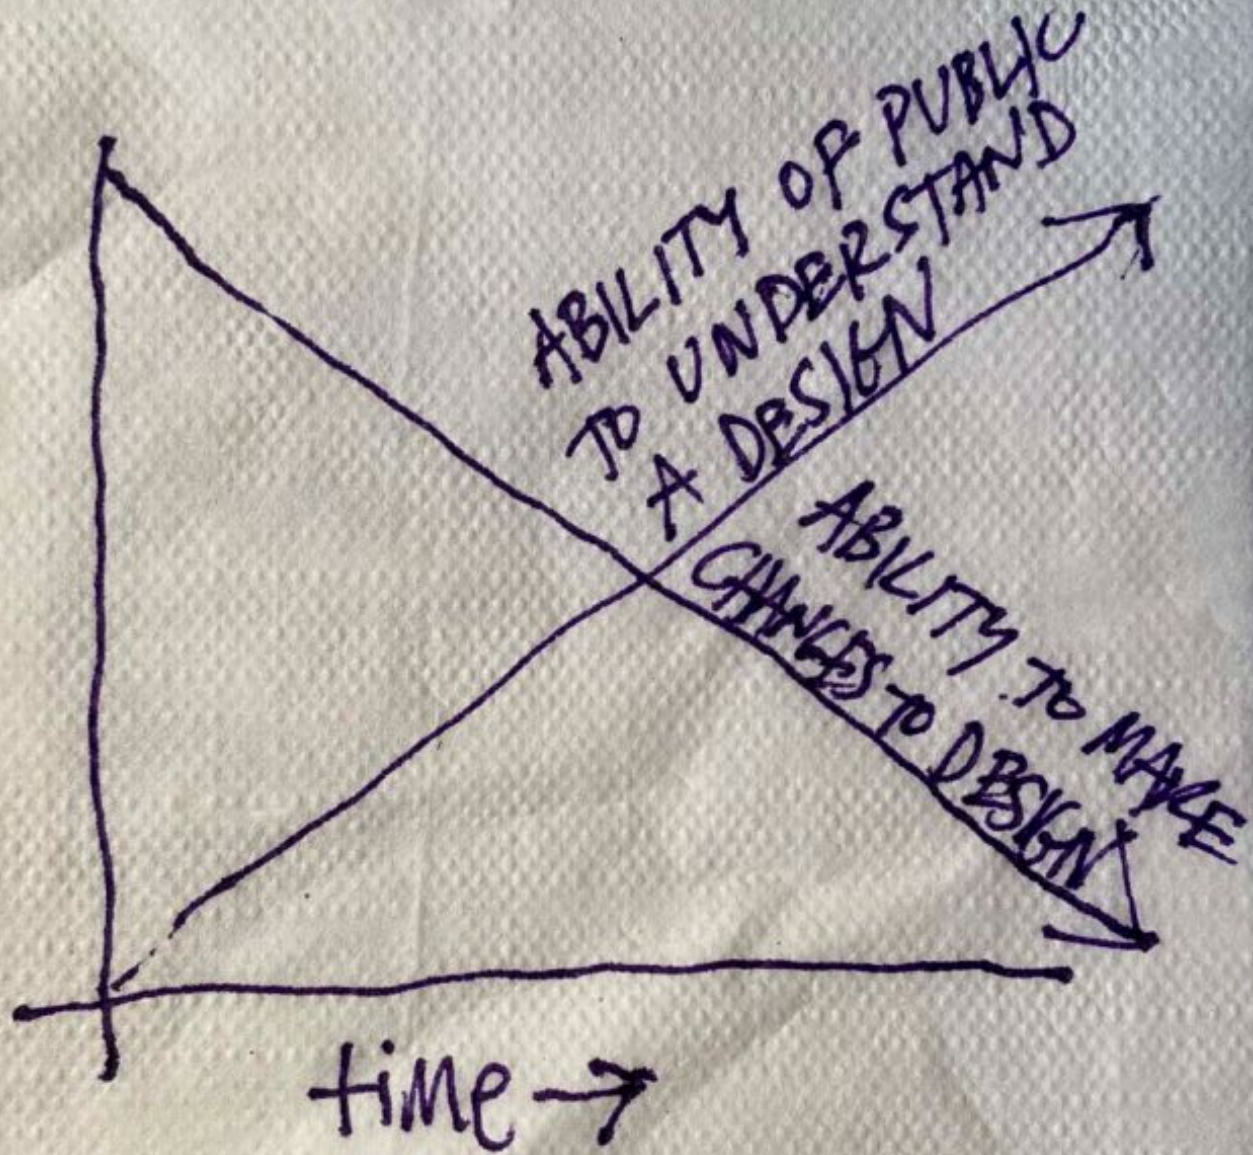 ABILITY OF PUBLIC
TO UNDERSTAND
A DESIGN
ABILITY TO MAKE
CHANGES TO DESIGN
time →